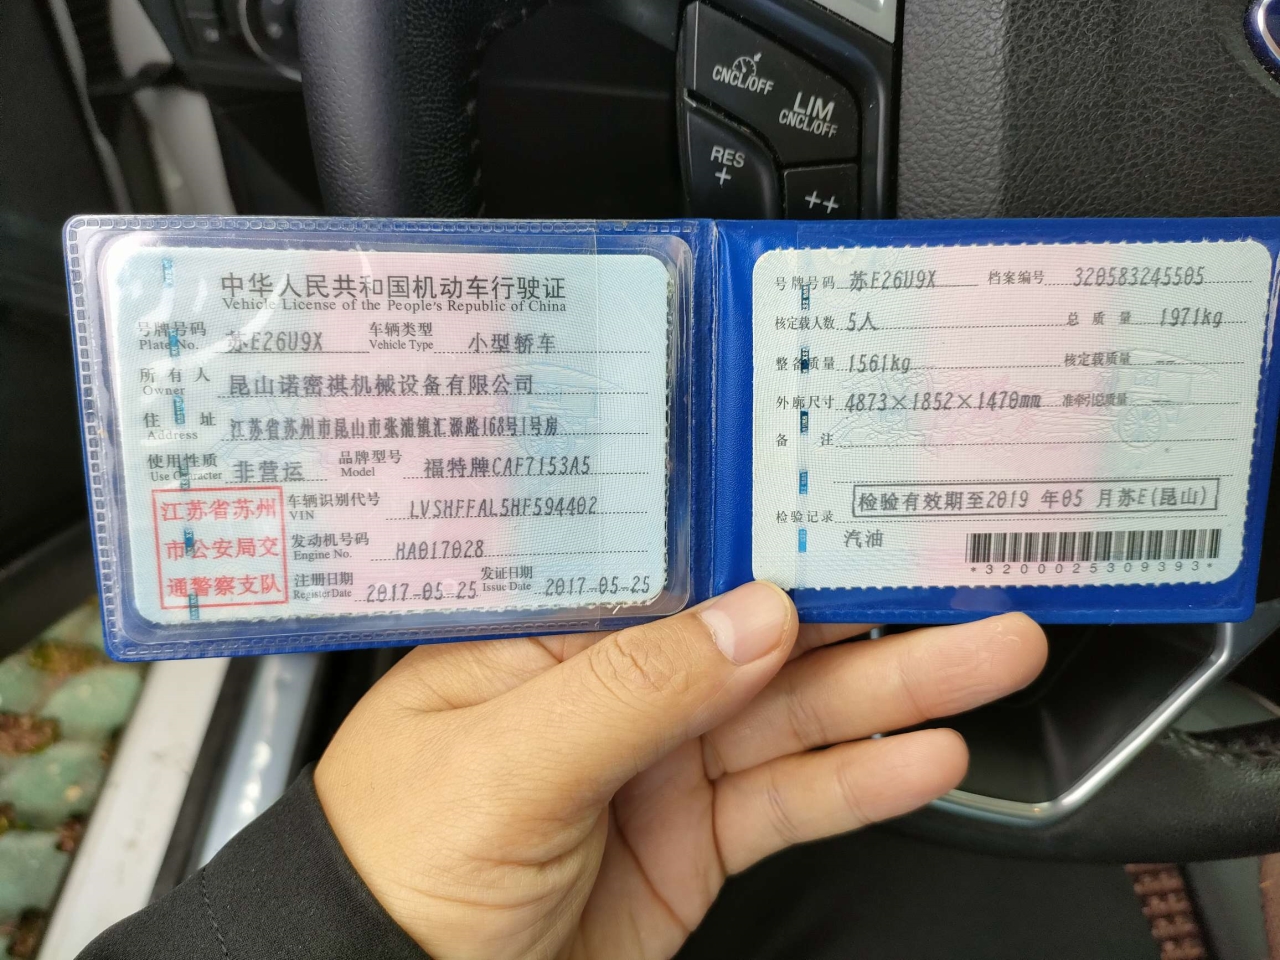 CNCL/OFF
LIM
CNCL/OFF
RES
+
++
中华人民共和国机动车行驶证
Vehicle License of the People's Republic of China
号牌号码 苏E26U9X 车辆类型 小型轿车
Plate No. Vehicle Type
所有人 昆山诺密祺机械设备有限公司
Owner
住址 江苏省苏州市昆山市张浦镇汇源路168号1号房
Address
使用性质 非营运 品牌型号 福特牌CAF7153A5
Use Character Model
江苏省苏州
市公安局交
通警察支队
车辆识别代号 LVSHFFAL5HF594402
VIN
发动机号码 HA017028
Engine No.
注册日期 2017-05-25 发证日期 2017-05-25
Register Date Issue Date
号牌号码 苏E26U9X 档案编号 320583245505
核定载人数 5人 总质量 1971kg
整备质量 1561kg 核定载质量 --
外廓尺寸 4873×1852×1470mm 准牵引总质量 --
备注
检验有效期至2019 年05 月苏E(昆山)
检验记录
汽油
*3200025309393*